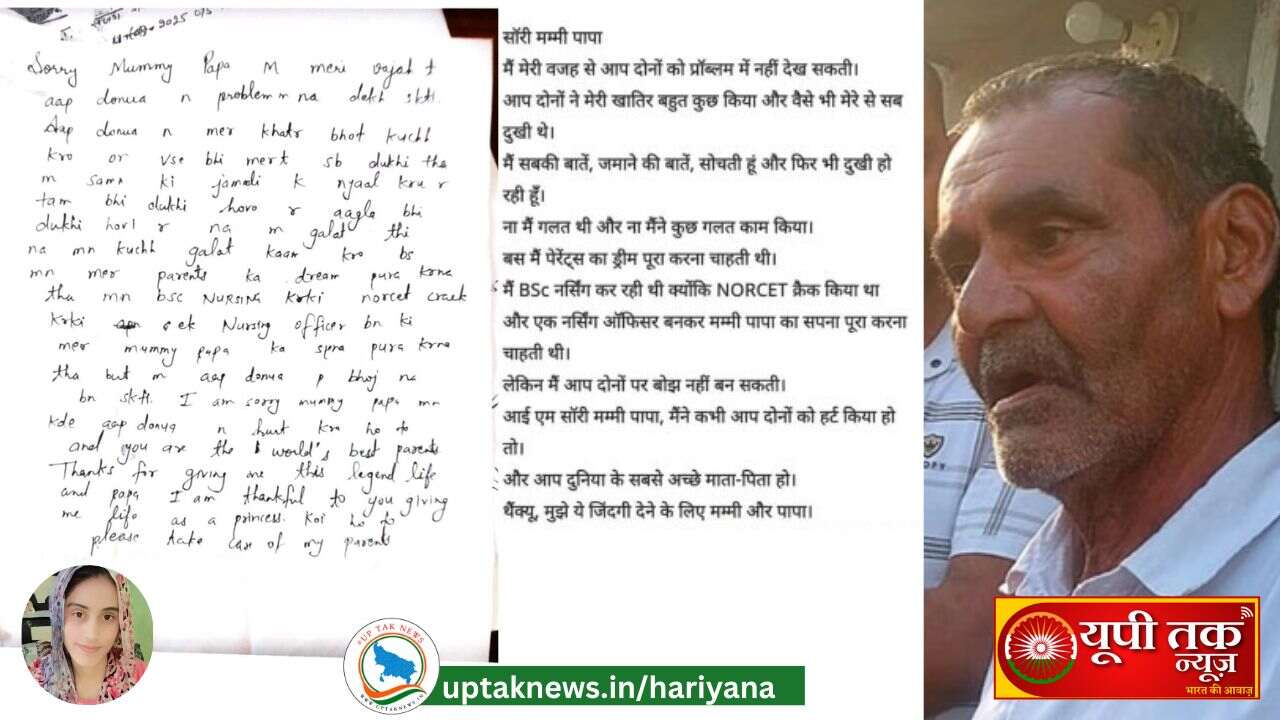 2025
Sorry Mummy Papa M meri vajah t
aap donua n problem m na dekh skti.
Aap donua n mer khatr bhot kuchh
kro or vse bhi mert sb dukhi the
m sama ki jamali k nyaal kru r
tam bhi dukhi hovo r aagla bhi
dukhi hori r na m galat thi
na mn kuchh galat kaam kro bs
mn mer parents ka dream pura krna
tha mn bsc NURSING krki norcet crack
krki ek Nursing officer bn ki
mer mummy papa ka spna pura krna
tha but m aap donua p bhoj na
bn skti. I am sorry mummy papa mn
kde aap donua n hurt kra ho to
and you are the world's best parents
Thanks for giving me this legend life
and papa I am thankful to you giving
me life as a princess. Koi ho to
please take care of my parents
सॉरी मम्मी पापा
मैं मेरी वजह से आप दोनों को प्रॉब्लम में नहीं देख सकती।
आप दोनों ने मेरी खातिर बहुत कुछ किया और वैसे भी मेरे से सब
दुखी थे।
मैं सबकी बातें, जमाने की बातें, सोचती हूं और फिर भी दुखी हो
रही हूँ।
ना मैं गलत थी और ना मैंने कुछ गलत काम किया।
बस मैं पेरेंट्स का ड्रीम पूरा करना चाहती थी।
मैं BSc नर्सिंग कर रही थी क्योंकि NORCET क्रैक किया था
और एक नर्सिंग ऑफिसर बनकर मम्मी पापा का सपना पूरा करना
चाहती थी।
लेकिन मैं आप दोनों पर बोझ नहीं बन सकती।
आई एम सॉरी मम्मी पापा, मैंने कभी आप दोनों को हर्ट किया हो
तो।
और आप दुनिया के सबसे अच्छे माता-पिता हो।
थैंक्यू, मुझे ये जिंदगी देने के लिए मम्मी और पापा।
UP TAK NEWS
WWW.UPTAKNEWS.IN
uptaknews.in/hariyana
यूपी तक
न्यूज़
भारत की आवाज़